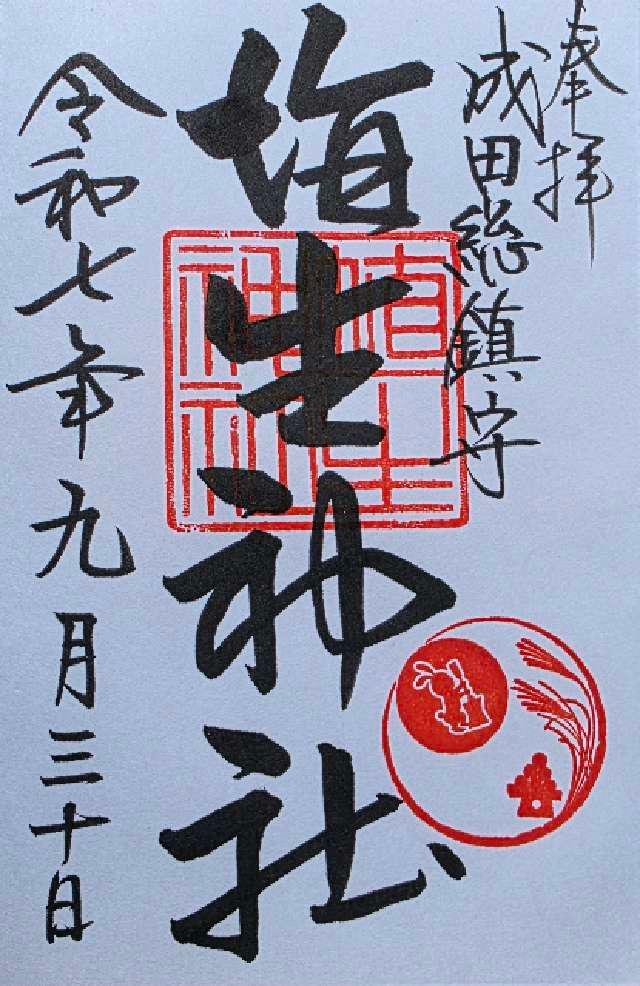 奉拝
成田総鎮守
埴生神社
埴生神社
令和七年九月三十日